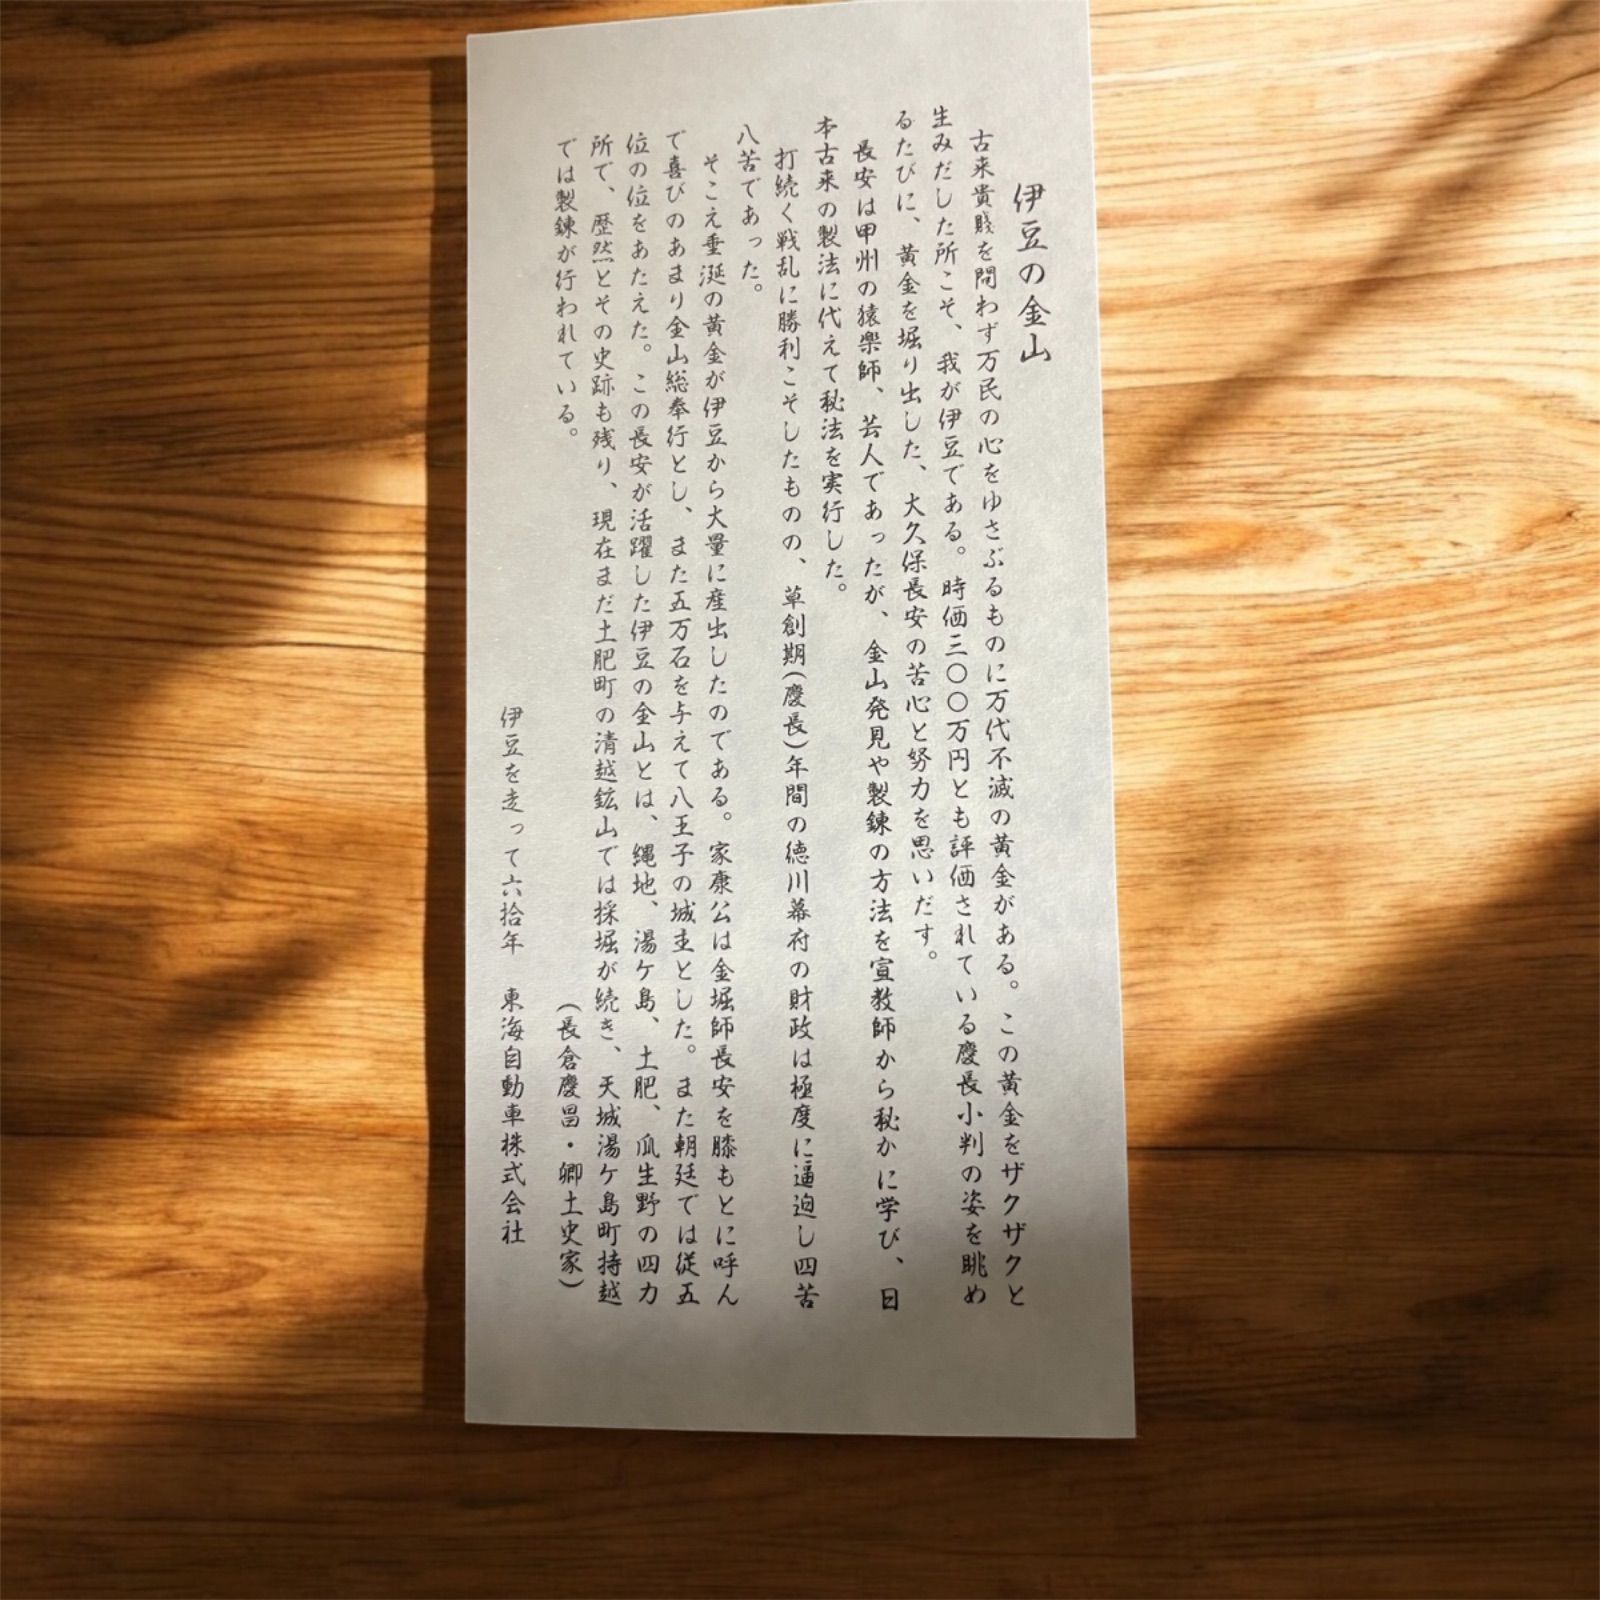 伊豆の金山
古来貴賤を問わず万民の心をゆさぶるものに万代不滅の黄金がある。この黄金をザクザクと
生みだした所こそ、我が伊豆である。時価三〇〇万円とも評価されている慶長小判の姿を眺め
るたびに、黄金を堀り出した、大久保長安の苦心と努力を思いだす。
長安は甲州の猿楽師、芸人であったが、金山発見や製錬の方法を宣教師から秘かに学び、日
本古来の製法に代えて秘法を実行した。
打続く戦乱に勝利こそしたものの、草創期(慶長)年間の徳川幕府の財政は極度に逼迫し四苦
八苦であった。
そこえ垂涎の黄金が伊豆から大量に産出したのである。家康公は金堀師長安を膝もとに呼ん
で喜びのあまり金山総奉行とし、また五万石を与えて八王子の城主とした。また朝廷では従五
位の位をあたえた。この長安が活躍した伊豆の金山とは、縄地、湯ケ島、土肥、瓜生野の四カ
所で、歴然とその史跡も残り、現在まだ土肥町の清越鉱山では採堀が続き、天城湯ケ島町持越
では製錬が行われている。
(長倉慶昌・郷土史家)
伊豆を走って六拾年　東海自動車株式会社